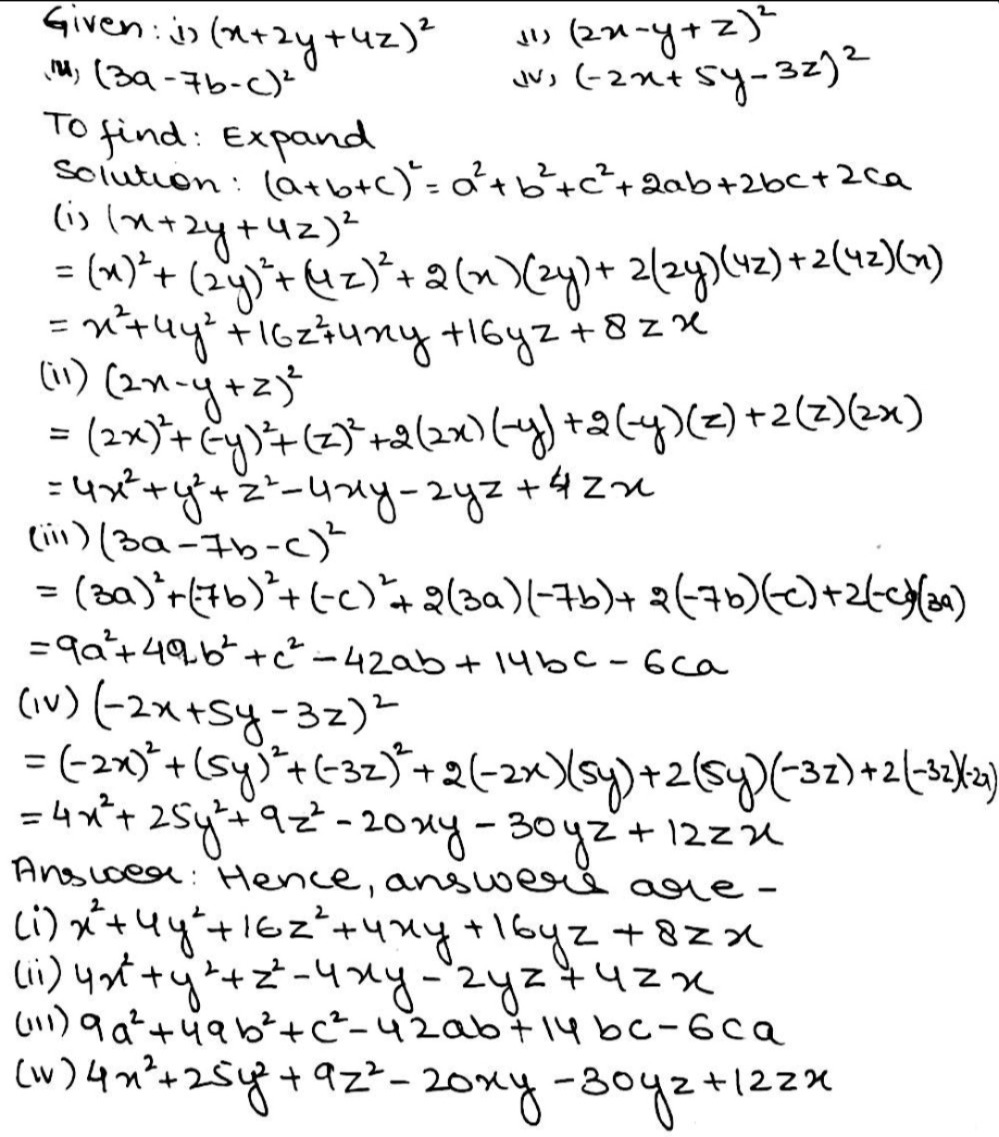 Given: i) (x+2y+4z)² ii) (2x-y+z)²
iii) (3a-7b-c)² iv) (-2x+5y-3z)²
To find: Expand
Solution: (a+b+c)² = a²+b²+c²+2ab+2bc+2ca
(i) (x+2y+4z)²
= (x)²+(2y)²+(4z)²+2(x)(2y)+2(2y)(4z)+2(4z)(x)
= x²+4y²+16z²+4xy+16yz+8zx
(ii) (2x-y+z)²
= (2x)²+(-y)²+(z)²+2(2x)(-y)+2(-y)(z)+2(z)(2x)
= 4x²+y²+z²-4xy-2yz+4zx
(iii) (3a-7b-c)²
= (3a)²+(-7b)²+(-c)²+2(3a)(-7b)+2(-7b)(-c)+2(-c)(3a)
= 9a²+49b²+c²-42ab+14bc-6ca
(iv) (-2x+5y-3z)²
= (-2x)²+(5y)²+(-3z)²+2(-2x)(5y)+2(5y)(-3z)+2(-3z)(-2x)
= 4x²+25y²+9z²-20xy-30yz+12zx
Answer: Hence, answers are -
(i) x²+4y²+16z²+4xy+16yz+8zx
(ii) 4x²+y²+z²-4xy-2yz+4zx
(iii) 9a²+49b²+c²-42ab+14bc-6ca
(iv) 4x²+25y²+9z²-20xy-30yz+12zx